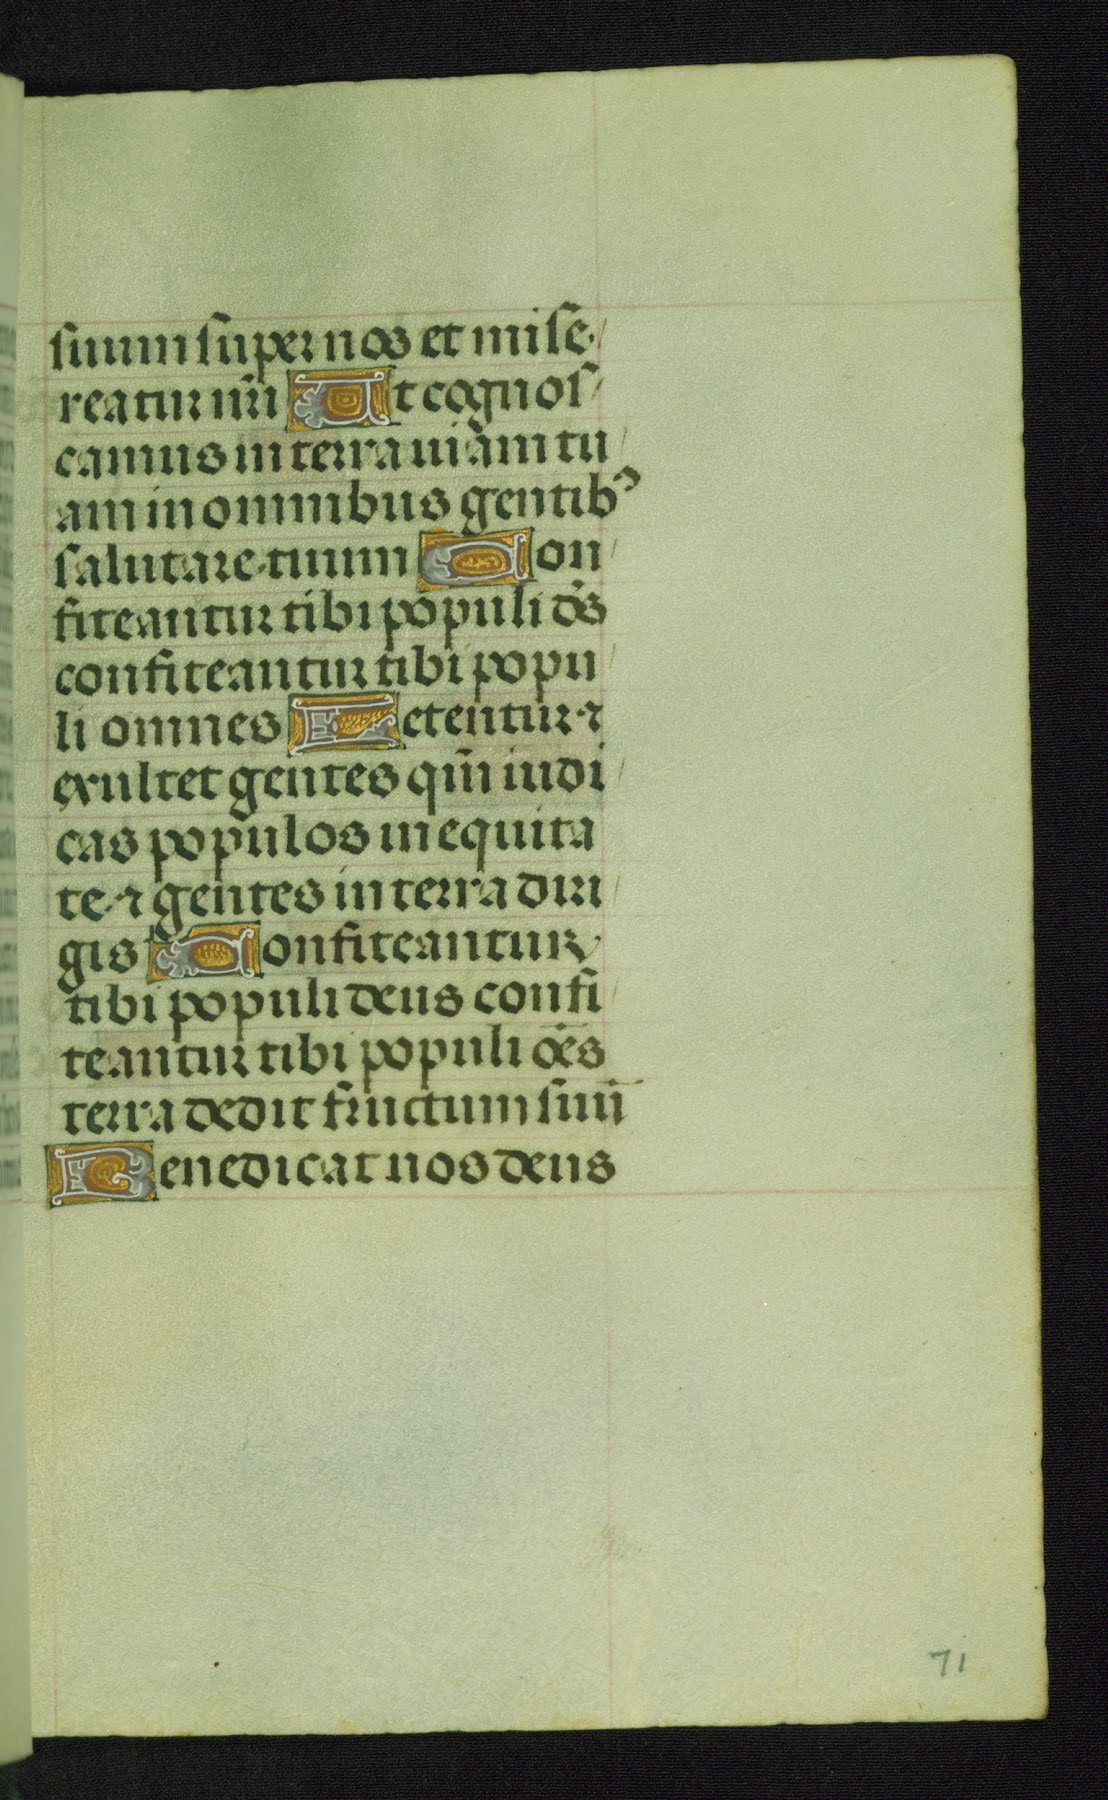 suum super nos et mise
reatur nr̄i Ut cognos
camus in terra uiam tu
am in omnibus gentibꝰ
salutare tuum Con
fiteantur tibi populi ds̄
confiteantur tibi popu
li omnes Letentur ⁊
exultet gentes qm̄ iudi
cas populos in equita
te ⁊ gentes in terra diri
gis Confiteantur
tibi populi deus confi
teantur tibi populi oēs
terra dedit fructum suū
Benedicat nos deus
71